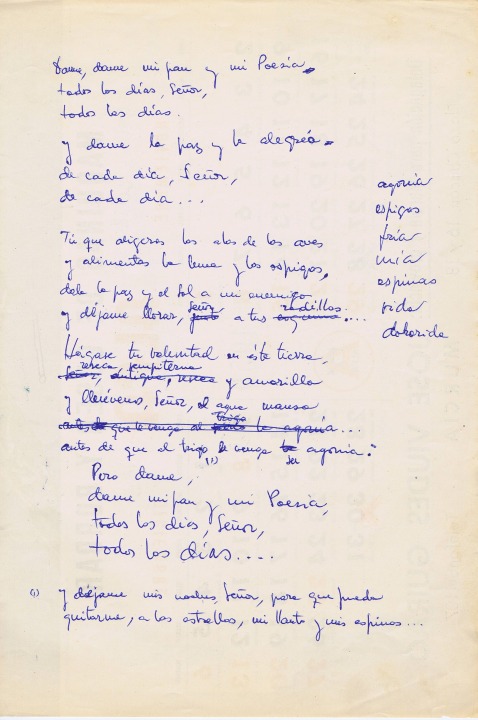 Dame, dame mi pan y mi Poesía,
todos los días, Señor,
todos los días.
y dame la paz y la alegría.
de cada día, Señor,
de cada día...
Tú que aligeras las alas de las aves
y alimentas la lluvia y las espigas,
dale la paz y el sol a mi enemigo
y déjame llorar, Señor a tus rodillas...
Hágase tu voluntad en ésta tierra,
reseca, sempiterna
Señor, antigua, y amarilla
y lluévenos, Señor, el agua mansa
antes de que le venga al trigo la agonía...
antes de que al trigo le venga su agonía."
(1)
Pero dame,
dame mi pan y mi Poesía,
todos los días, Señor,
todos los días....
(1) y déjame mis noches, Señor, para que pueda
quitarme, a las estrellas, mi llanto y mis espinas...
agonía
espigas
fría
mía
espinas
vida
dolorida